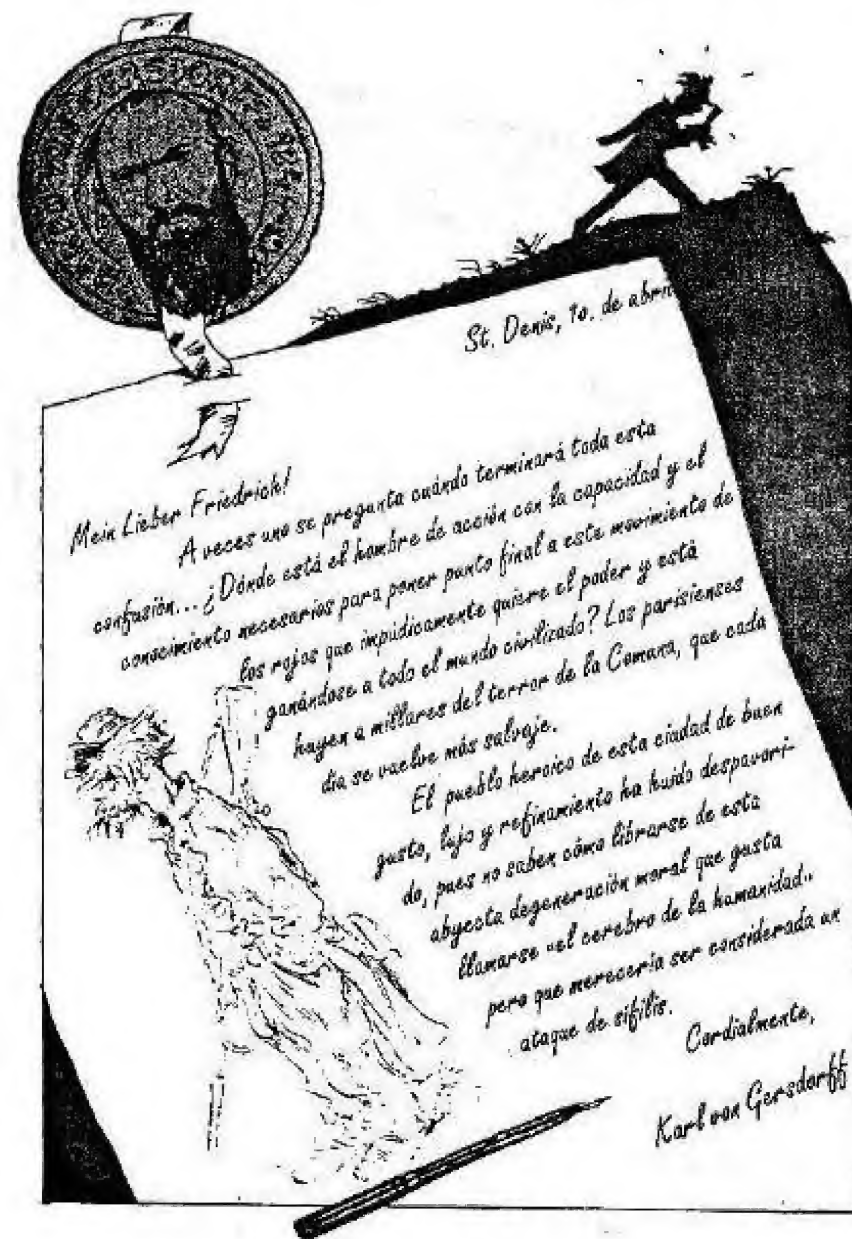 St. Denis, 1o. de abril
Mein Lieber Friedrich!
A veces uno se pregunta cuándo terminará toda esta
confusión... ¿Dónde está el hombre de acción con la capacidad y el
conocimiento necesarios para poner punto final a este movimiento de
los rojos que impúdicamente quiere el poder y está
ganándose a todo el mundo civilizado? Los parisienses
huyen a millares del terror de la Comuna, que cada
día se vuelve más salvaje.
El pueblo heroico de esta ciudad de buen
gusto, lujo y refinamiento ha huido despavori-
do, pues no saben cómo librarse de esta
abyecta degeneración moral que gusta
llamarse «el cerebro de la humanidad»
pero que merecería ser considerada un
ataque de sífilis.
Cordialmente,
Karl von Gersdorff